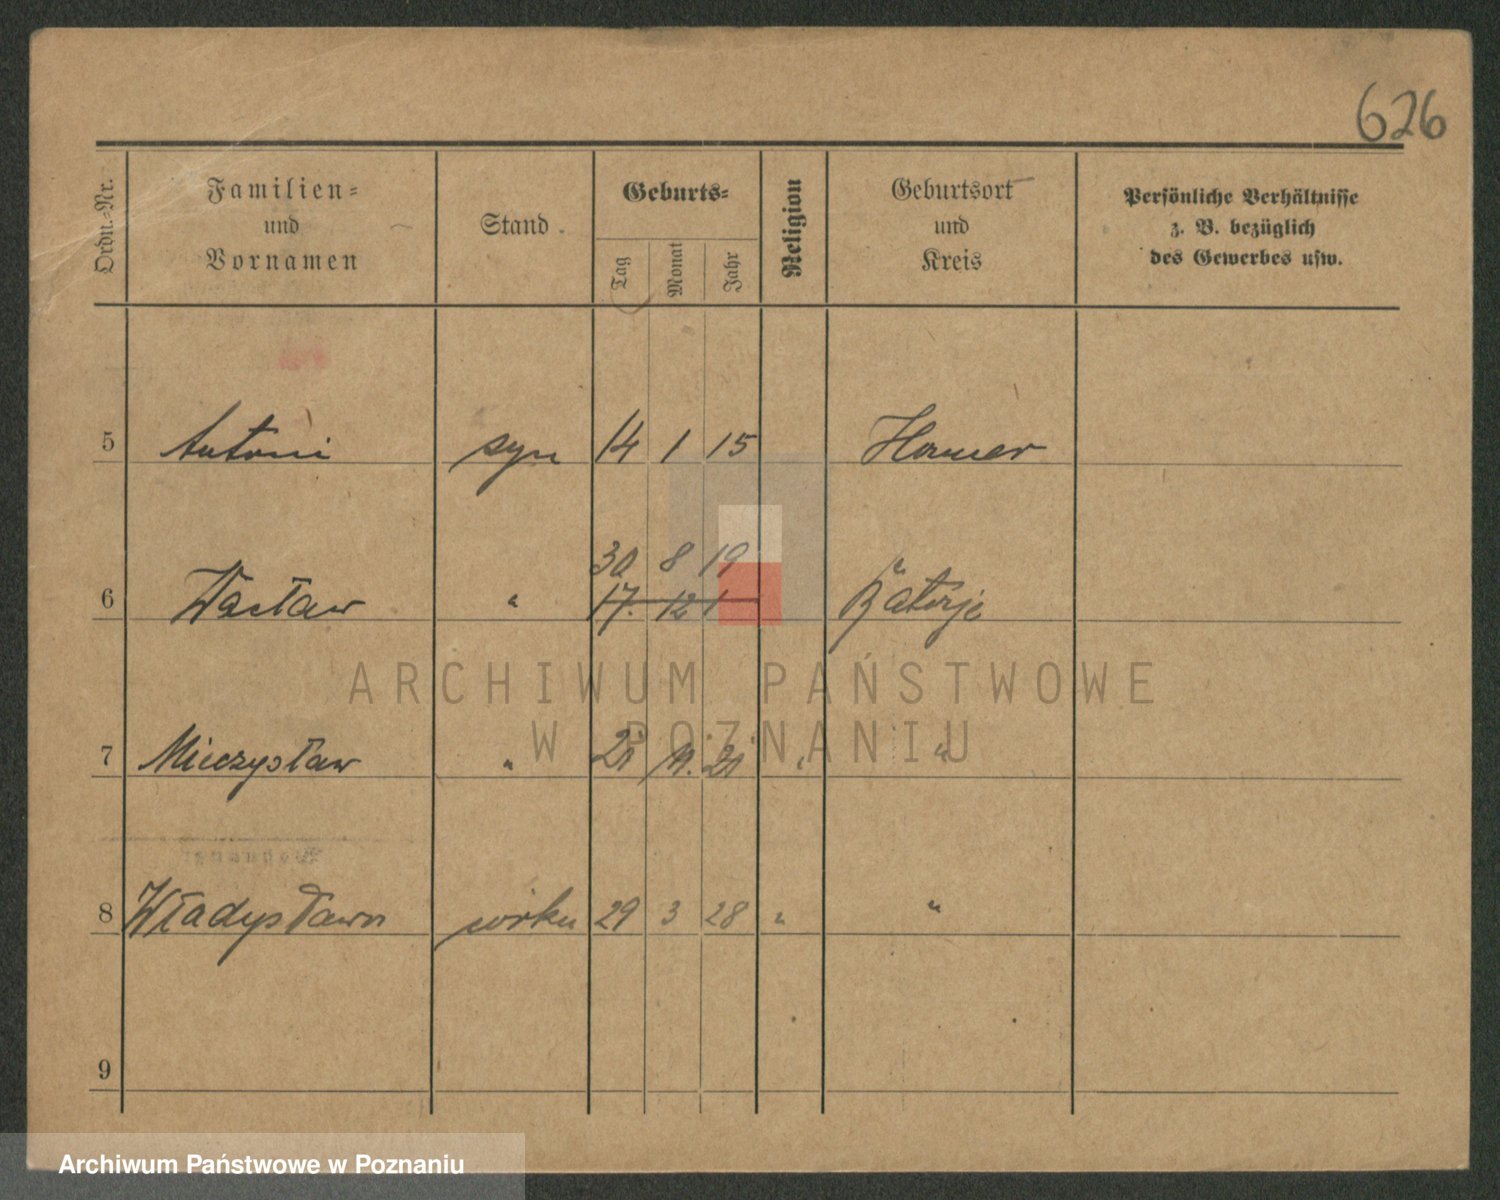 626
Ordn.-Nr.
Familien-
und
Vornamen
Stand
Geburts-
Tag
Monat
Jahr
Religion
Geburtsort
und
Kreis
Persönliche Verhältnisse
z. B. bezüglich
des Gewerbes usw.
5 Antoni syn 14 1 15 Hamer
30 8 19
6 Wacław " 17. 12 1 "
7 Mieczysław " 21 11. 21 "
8 Władysława córka 29 3 28 " "
9
ARCHIWUM PAŃSTWOWE
W POZNANIU
Archiwum Państwowe w Poznaniu